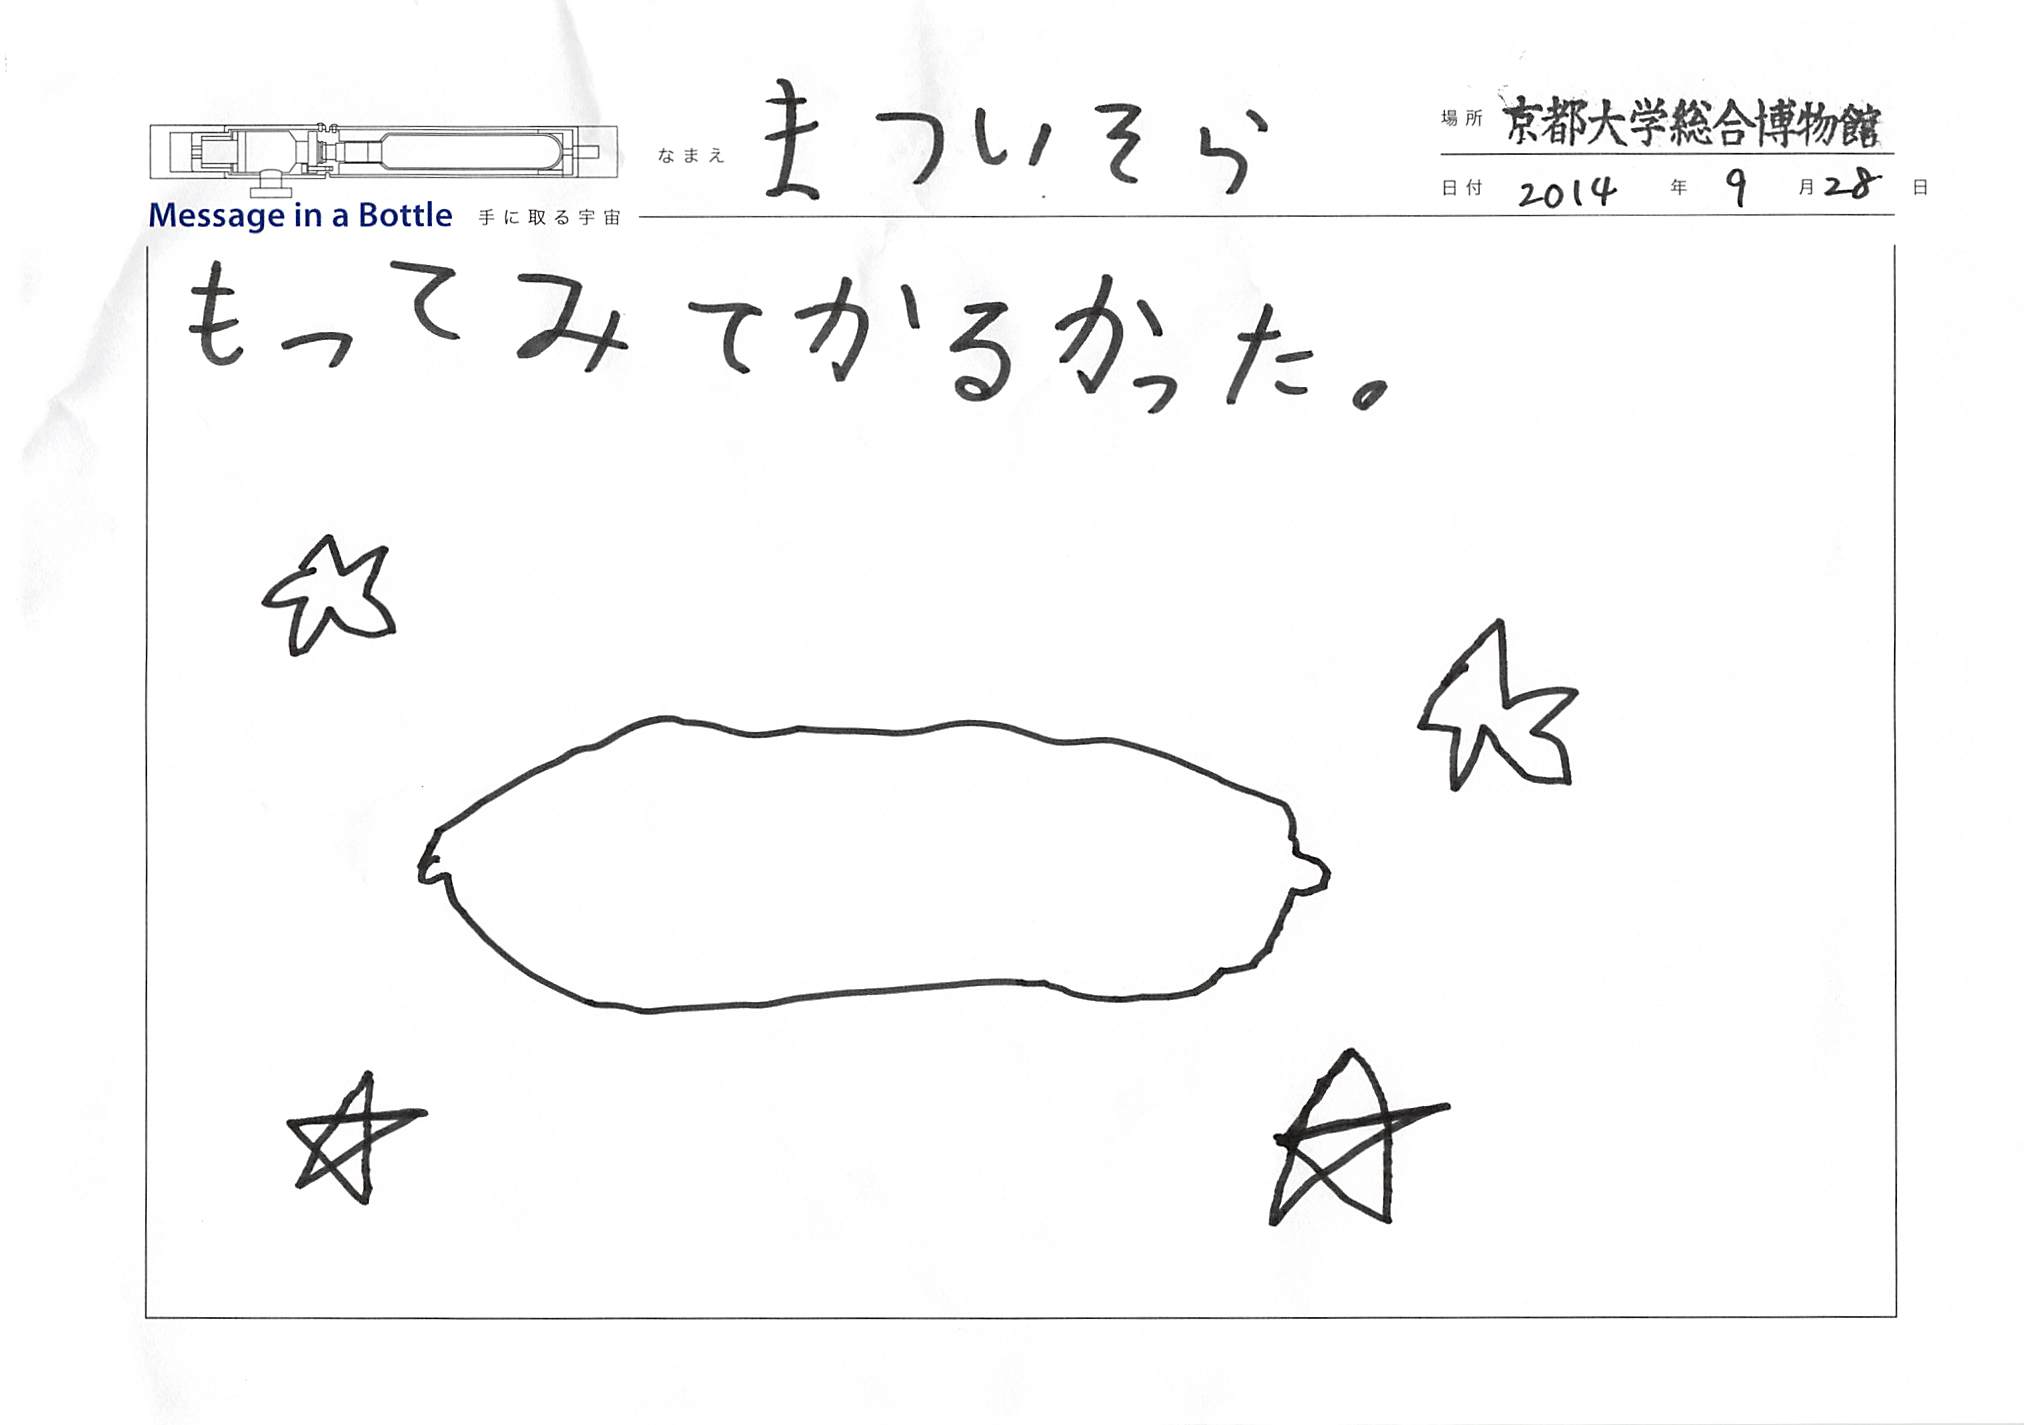 なまえ まついそら
場所 京都大学総合博物館
日付 2014 年 9 月 28 日
Message in a Bottle 手に取る宇宙
もってみてかるかった。